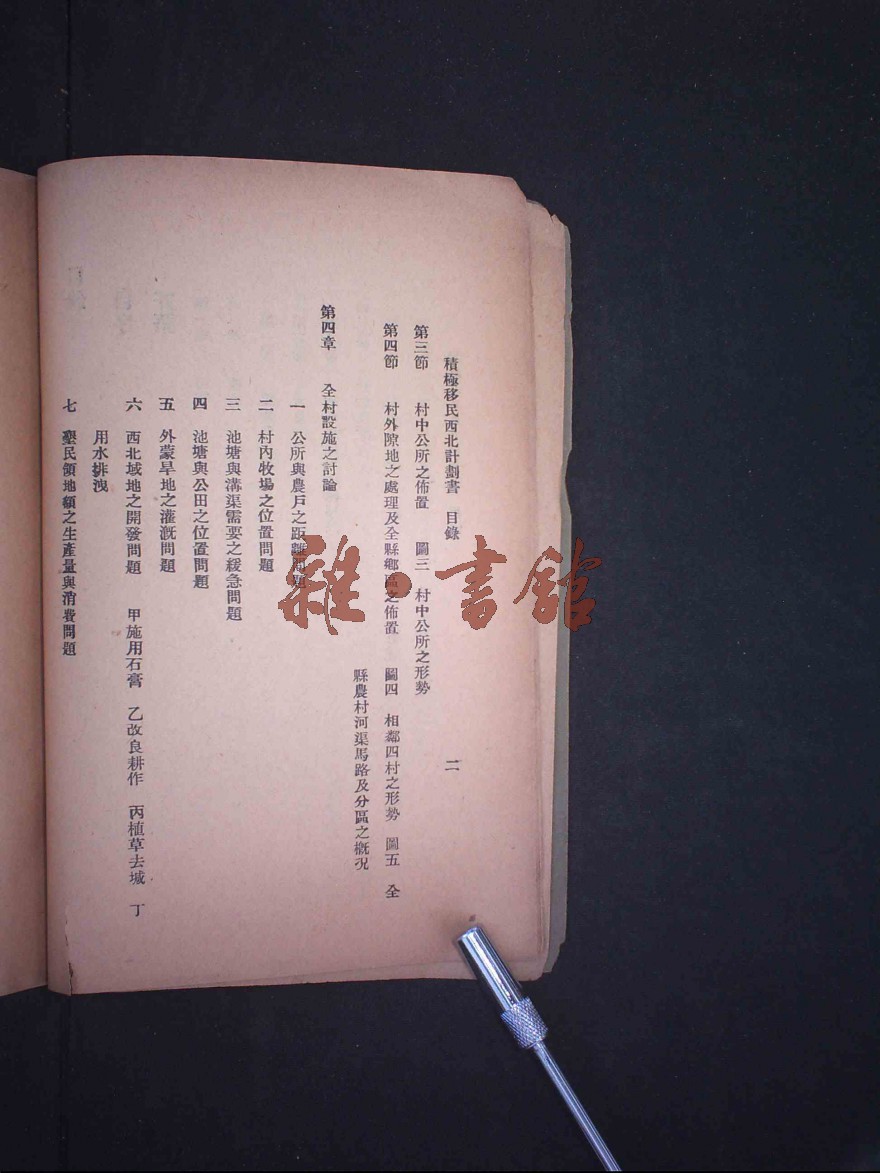 積極移民西北計劃書 目錄 二
第三節 村中公所之佈置 圖三 村中公所之形勢
第四節 村外隙地之處理及全縣鄉區之佈置 圖四 相鄰四村之形勢 圖五 全
縣農村河渠馬路及分區之概況
第四章 全村設施之討論
一 公所與農戶之距離問題
二 村內牧場之位置問題
三 池塘與溝渠需要之緩急問題
四 池塘與公田之位置問題
五 外蒙旱地之灌漑問題
六 西北堿地之開發問題 甲施用石膏 乙改良耕作 丙植草去堿 丁
用水排洩
七 墾民領地額之生產量與消費問題
雜·書館